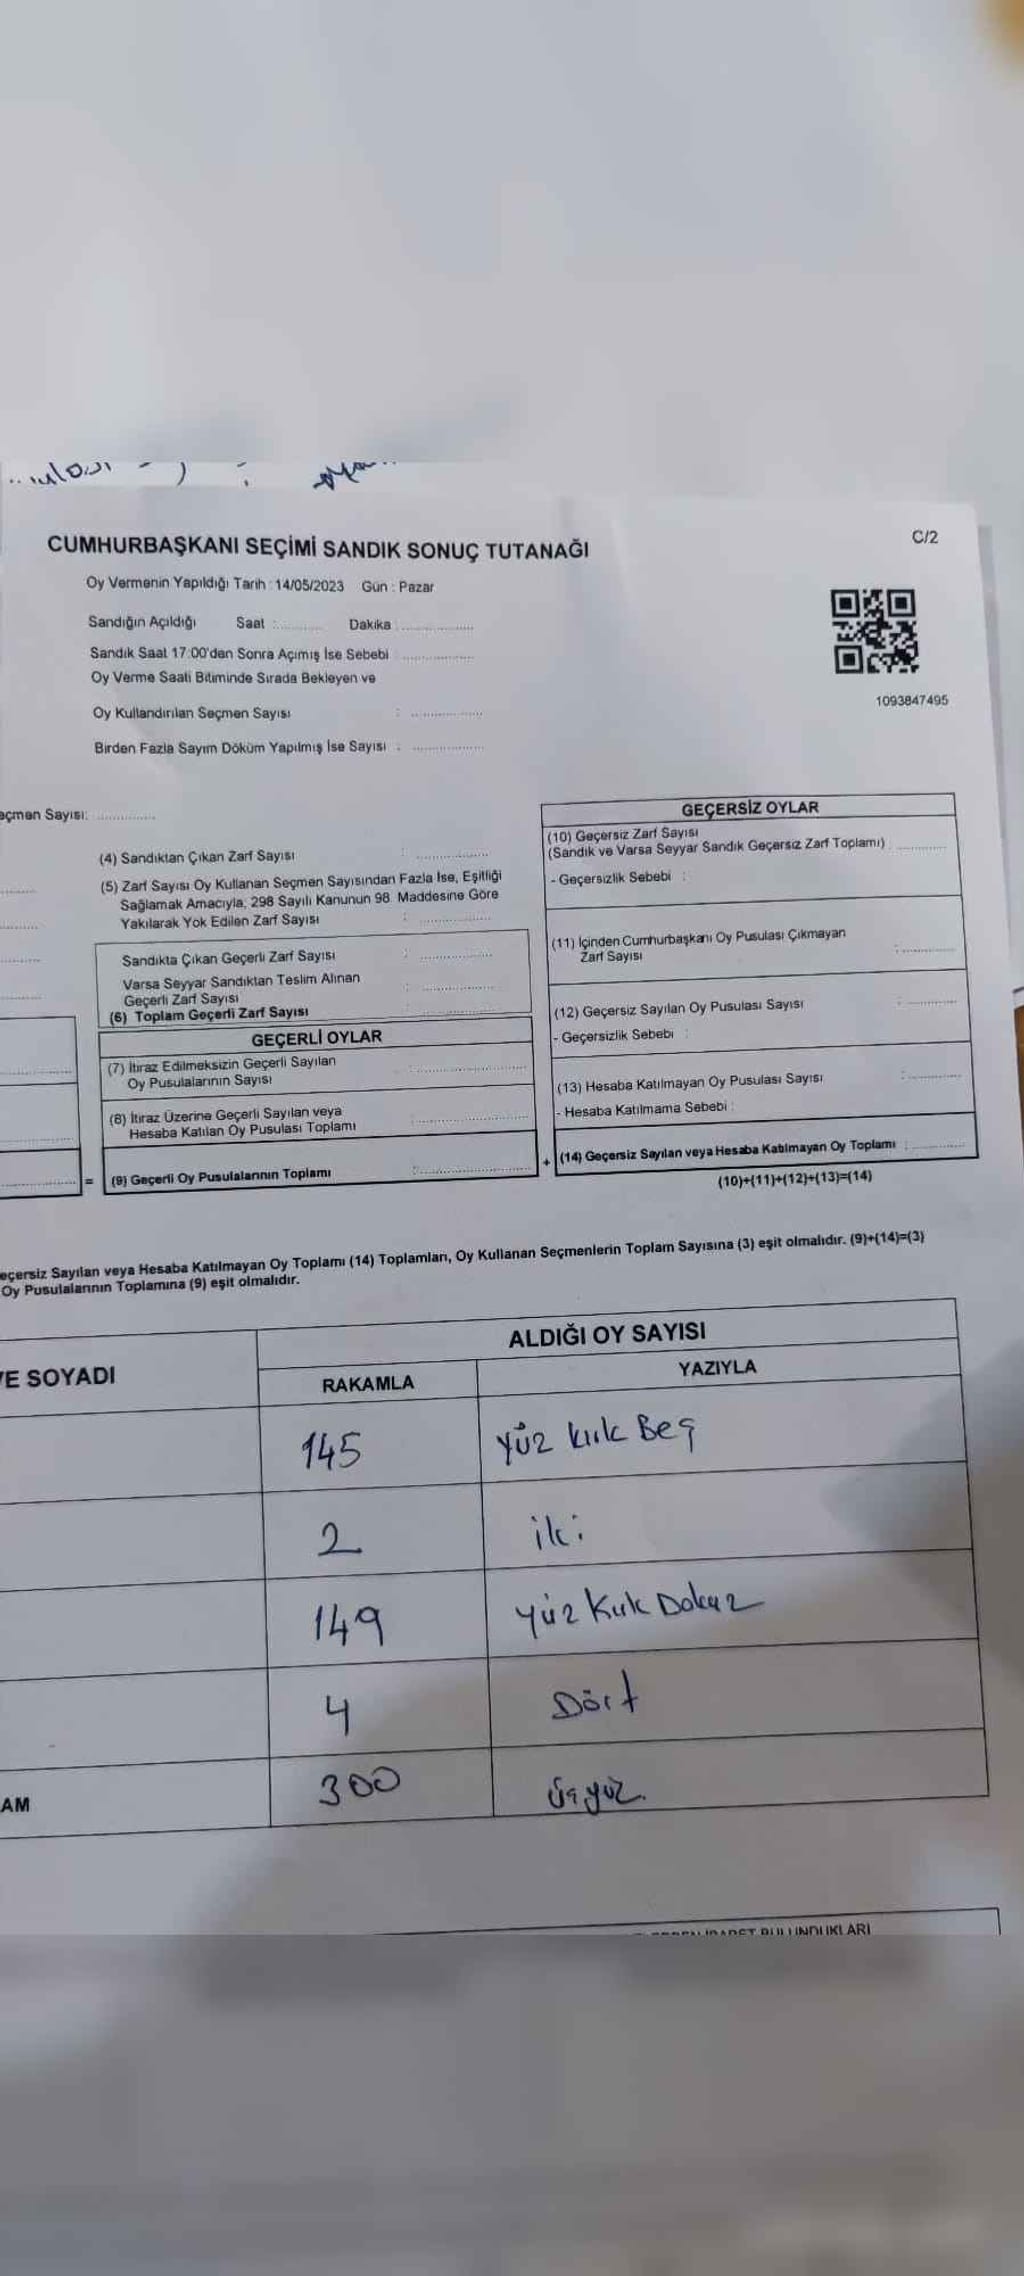 CUMHURBAŞKANI SEÇİMİ SANDIK SONUÇ TUTANAĞI
C/2
Oy Vermenin Yapıldığı Tarih : 14/05/2023 Gün : Pazar
Sandığın Açıldığı Saat :............ Dakika :..................
Sandık Saat 17:00'den Sonra Açımış İse Sebebi :..................
Oy Verme Saati Bitiminde Sırada Bekleyen ve
Oy Kullandırılan Seçmen Sayısı : ..................
1093847495
Birden Fazla Sayım Döküm Yapılmış İse Sayısı : ..................
eçmen Sayısı: ...............
(4) Sandıktan Çıkan Zarf Sayısı : ..................
(5) Zarf Sayısı Oy Kullanan Seçmen Sayısından Fazla İse, Eşitliği
Sağlamak Amacıyla; 298 Sayılı Kanunun 98. Maddesine Göre
Yakılarak Yok Edilen Zarf Sayısı : ..................
Sandıkta Çıkan Geçerli Zarf Sayısı : ..................
Varsa Seyyar Sandıktan Teslim Alınan
Geçerli Zarf Sayısı : ..................
(6) Toplam Geçerli Zarf Sayısı : ..................
GEÇERLİ OYLAR
(7) İtiraz Edilmeksizin Geçerli Sayılan
Oy Pusulalarının Sayısı : ..................
(8) İtiraz Üzerine Geçerli Sayılan veya
Hesaba Katılan Oy Pusulası Toplamı : ..................
= (9) Geçerli Oy Pusulalarının Toplamı : ..................
GEÇERSİZ OYLAR
(10) Geçersiz Zarf Sayısı
(Sandık ve Varsa Seyyar Sandık Geçersiz Zarf Toplamı) : ............
- Geçersizlik Sebebi :
(11) İçinden Cumhurbaşkanı Oy Pusulası Çıkmayan
Zarf Sayısı : ............
(12) Geçersiz Sayılan Oy Pusulası Sayısı : ............
- Geçersizlik Sebebi :
(13) Hesaba Katılmayan Oy Pusulası Sayısı : ............
- Hesaba Katılmama Sebebi :
+ (14) Geçersiz Sayılan veya Hesaba Katılmayan Oy Toplamı : ............
(10)+(11)+(12)+(13)=(14)
eçersiz Sayılan veya Hesaba Katılmayan Oy Toplamı (14) Toplamları, Oy Kullanan Seçmenlerin Toplam Sayısına (3) eşit olmalıdır. (9)+(14)=(3)
Oy Pusulalarının Toplamına (9) eşit olmalıdır.
VE SOYADI ALDIĞI OY SAYISI
RAKAMLA YAZIYLA
145 Yüz kırk Beş
2 iki
149 Yüz Kırk Dokuz
4 Dört
AM 300 Üçyüz.
BULUNDUKLARI